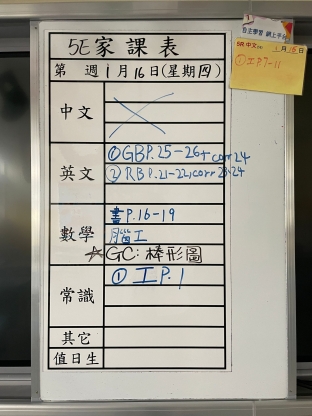 5E家課表
第 週1月16日(星期四)
中文
英文
①GBP.25-26+corr24
②RBP.21-22,corr23-24
數學
書P.16-19
腦工
☆GC:棒形圖
常識
①工P.1
其它
值日生
自主學習 網上平台
5R中文
1月15日
①工P.7-11